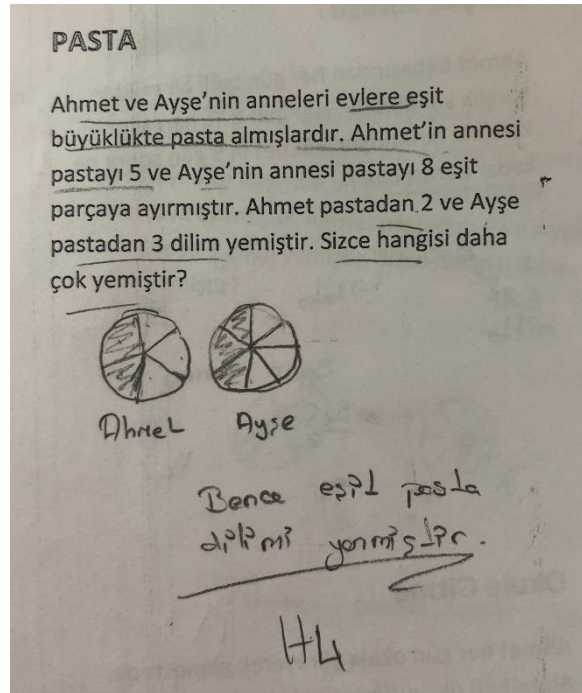 PASTA
Ahmet ve Ayşe'nin anneleri evlere eşit
büyüklükte pasta almışlardır. Ahmet'in annesi
pastayı 5 ve Ayşe'nin annesi pastayı 8 eşit
parçaya ayırmıştır. Ahmet pastadan 2 ve Ayşe
pastadan 3 dilim yemiştir. Sizce hangisi daha
çok yemiştir?
Ahmet Ayşe
Bence eşit pasta
dilimi yenmiştir.
H4